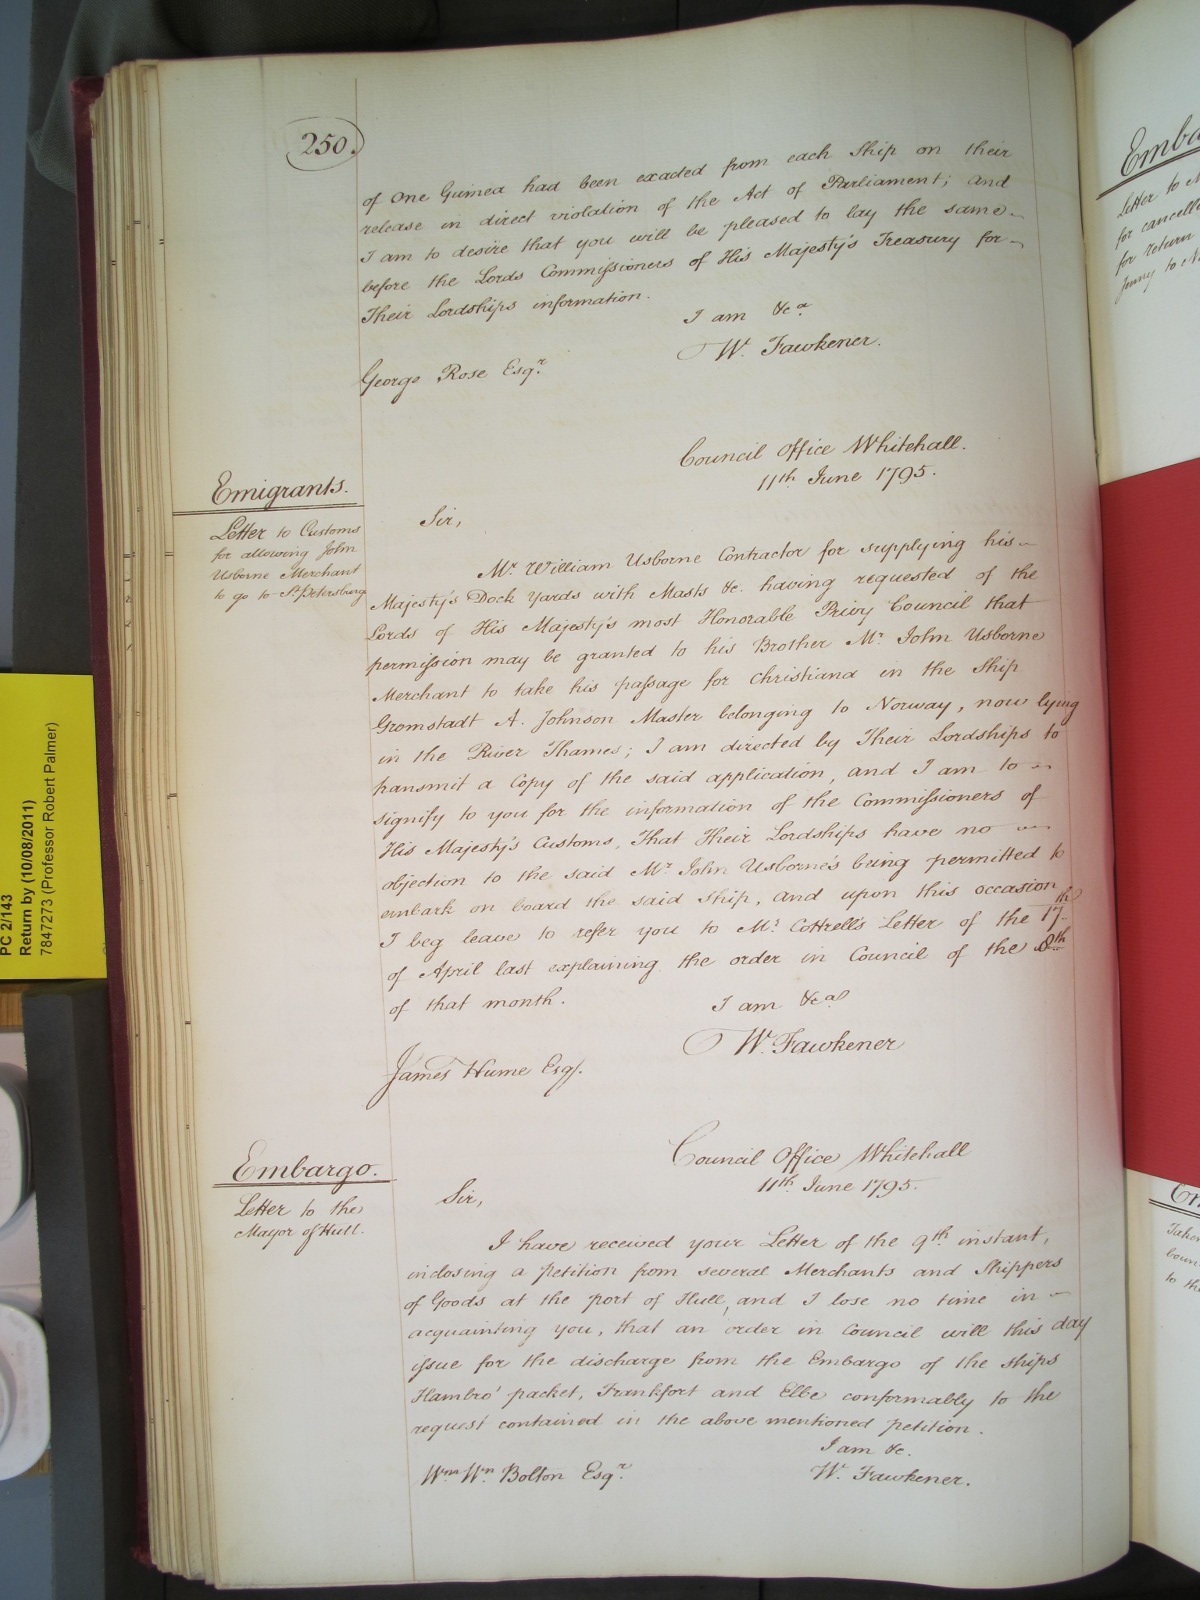 250.
of One Guinea had been exacted from each Ship on their
release in direct violation of the Act of Parliament; and
I am to desire that you will be pleased to lay the same
before the Lords Commissioners of His Majesty's Treasury for
Their Lordships information.
I am &c a
W. Fawkener.
George Rose Esqr.
Council Office Whitehall.
11th June 1795.
Emigrants.
Letter to Customs
for allowing John
Usborne Merchant
to go to St. Petersburg
Sir,
Mr. William Usborne Contractor for supplying his
Majesty's Dock Yards with Masts &c. having requested of the
Lords of His Majesty's most Honorable Privy Council that
permission may be granted to his Brother Mr. John Usborne
Merchant to take his passage for Christiana in the Ship
Gromstadt A. Johnson Master belonging to Norway, now lying
in the River Thames; I am directed by Their Lordships to
transmit a Copy of the said application, and I am to
signify to you for the information of the Commissioners of
His Majesty's Customs, That Their Lordships have no
objection to the said Mr. John Usborne's being permitted to
embark on board the said ship, and upon this occasion
I beg leave to refer you to Mr. Cottrell's Letter of the 17th
of April last explaining the order in Council of the 8th
of that month.
I am &c a
W. Fawkener
James Hume Esqr.
Council Office Whitehall
11th June 1795.
Embargo.
Letter to the
Mayor of Hull.
Sir,
I have received your Letter of the 9th instant,
inclosing a petition from several Merchants and Shippers
of Goods at the port of Hull, and I lose no time in
acquainting you, that an order in Council will this day
issue for the discharge from the Embargo of the ships
Hambro' packet, Frankfort and Elbe conformably to the
request contained in the above mentioned petition.
I am &c.
W. Fawkener.
Wm. Wn. Bolton Esqr.
Emba
Letter to
for cancelle
for return
Jenny to N
Em
Taken
boun
to the
PC 2/143
Return by (10/08/2011)
7847273 (Professor Robert Palmer)